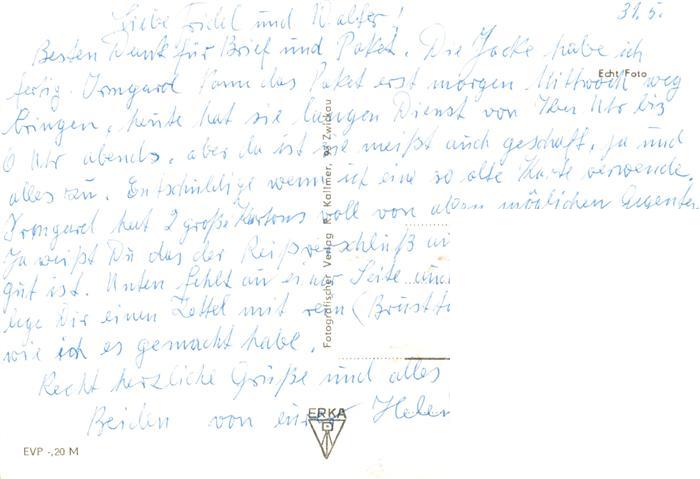 31.5.
Liebe Friedel und Walter!
Besten Dank für Brief und Paket. Die Jacke habe ich
fertig. Irmgard kann das Paket erst morgen Mittwoch weg
bringen, heute hat sie langen Dienst von Uhr bis
6 Uhr abends, aber da ist sie meißt auch geschafft, ja und
alles zu. Entschuldige wenn ich eine so alte Karte verwende,
Irmgard hat 2 große Kartons voll von allen möglichen
Ja weißt Du das der Reißverschluß
gut ist. Unten fehlt an einer Seite und
lege Dir einen Zettel mit rein (
wie ich es gemacht habe.
Recht herzliche Grüße und alles
Beiden von eurer
Echt Foto
Fotografischer Verlag R. Kallmer, 95 Zwickau
ERKA
EVP -,20 M